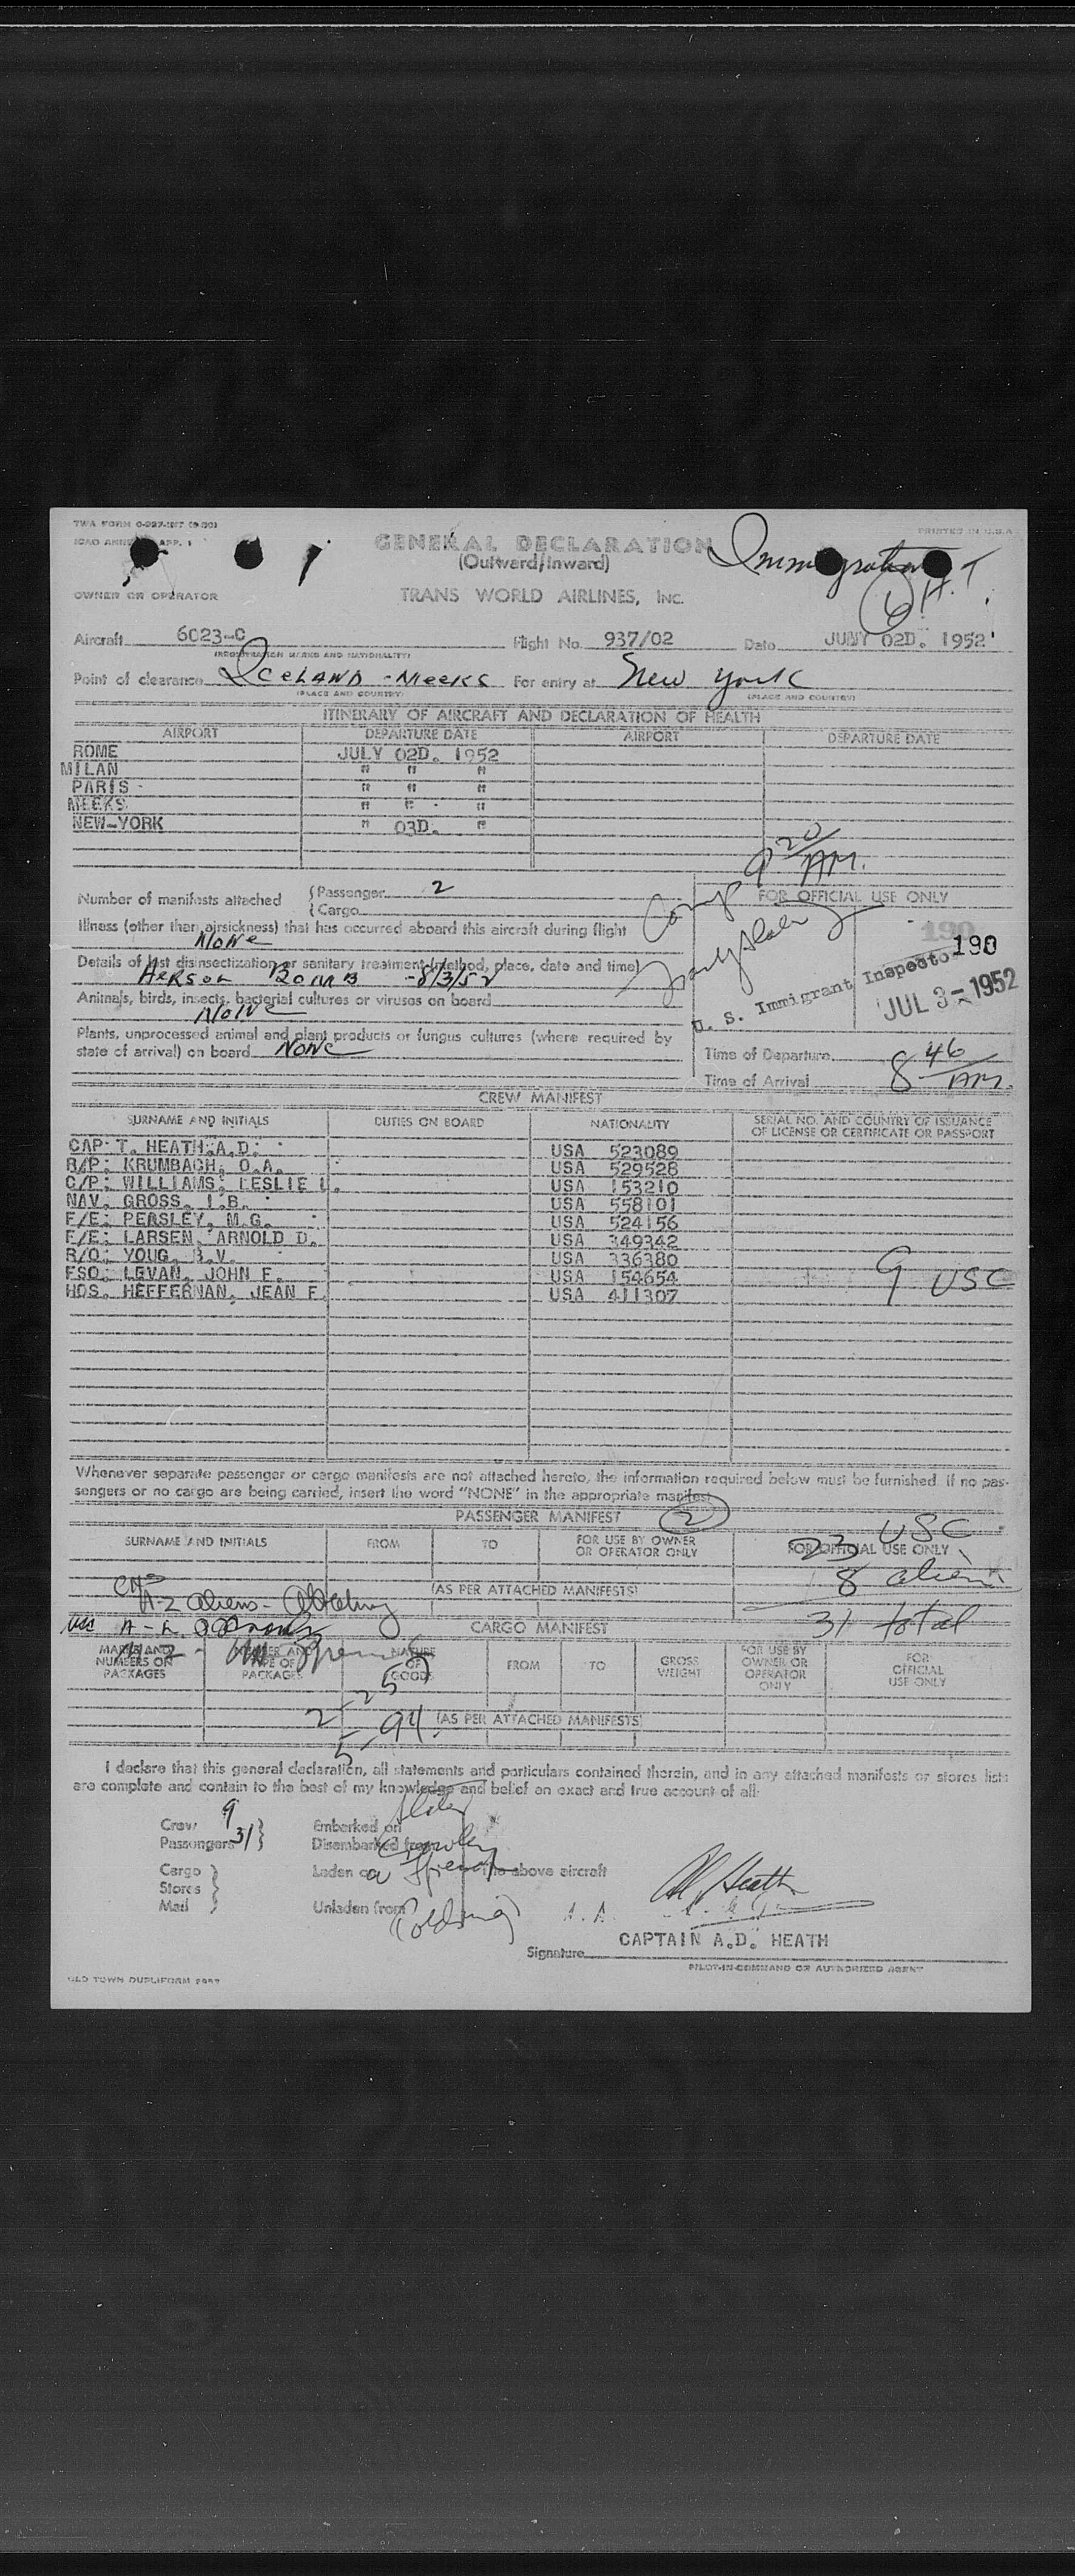 TWA FORM
PRINTED IN U.S.A
GENERAL DECLARATION
(Outward/Inward)
Immigration
OWNER OR OPERATOR
TRANS WORLD AIRLINES, INC.
Aircraft 6023-C Flight No. 937/02 Date JUNY 02D. 1952
(REGISTRATION MARKS AND NATIONALITY)
Point of clearance Iceland - Meeks For entry at New York
(PLACE AND COUNTRY) (PLACE AND COUNTRY)
ITINERARY OF AIRCRAFT AND DECLARATION OF HEALTH
AIRPORT DEPARTURE DATE AIRPORT DEPARTURE DATE
ROME JULY 02D. 1952
MILAN " " "
PARIS " " "
MEEKS " " "
NEW-YORK " 03D. "
9 20 AM.
Number of manifests attached (Passenger 2
(Cargo
FOR OFFICIAL USE ONLY
Illness (other than airsickness) that has occurred aboard this aircraft during flight
None
190
190
Details of last disinsectization or sanitary treatment (method, place, date and time)
U. S. Immigrant Inspector
JUL 3-1952
Animals, birds, insects, bacterial cultures or viruses on board
None
Plants, unprocessed animal and plant products or fungus cultures (where required by
state of arrival) on board None
Time of Departure
Time of Arrival 8 46 AM.
CREW MANIFEST
SURNAME AND INITIALS DUTIES ON BOARD NATIONALITY SERIAL NO. AND COUNTRY OF ISSUANCE
OF LICENSE OR CERTIFICATE OR PASSPORT
CAP: T. HEATH:A.D. USA 523089
KRUMBACH, O.A. USA 529528
C/P: WILLIAMS: LESLIE L. USA 153210
NAV. GROSS, I.B. USA 558101
F/E: PEASLEY, M.G. USA 524156
F/E: LARSEN, ARNOLD D. USA 349342
R/O: YOUG, B.V. USA 336380
FSO. LEVAN, JOHN F. USA 154654
HOS. HEFFERNAN, JEAN F. USA 411307
9 USC
Whenever separate passenger or cargo manifests are not attached hereto, the information required below must be furnished. If no pas-
sengers or no cargo are being carried, insert the word "NONE" in the appropriate manifest
PASSENGER MANIFEST 2
SURNAME AND INITIALS FROM TO FOR USE BY OWNER
OR OPERATOR ONLY
FOR OFFICIAL USE ONLY
23 USC
8 aliens
31 total
(AS PER ATTACHED MANIFESTS)
A-Z aliens -
USC A-L
CARGO MANIFEST
MARKS AND
NUMBERS ON
PACKAGES
NUMBER AND
TYPE OF
PACKAGES
NATURE
OF
GOODS
FROM TO GROSS
WEIGHT
FOR USE BY
OWNER OR
OPERATOR
ONLY
FOR
OFFICIAL
USE ONLY
(AS PER ATTACHED MANIFESTS)
I declare that this general declaration, all statements and particulars contained therein, and in any attached manifests or stores lists
are complete and contain to the best of my knowledge and belief an exact and true account of all:
Crew 9
Passengers 31
Embarked on
Disembarked from
Cargo
Stores
Mail
Laden on the above aircraft
Unladen from
CAPTAIN A.D. HEATH
Signature
PILOT-IN-COMMAND OR AUTHORIZED AGENT
OLD TOWN DUPLIFORM